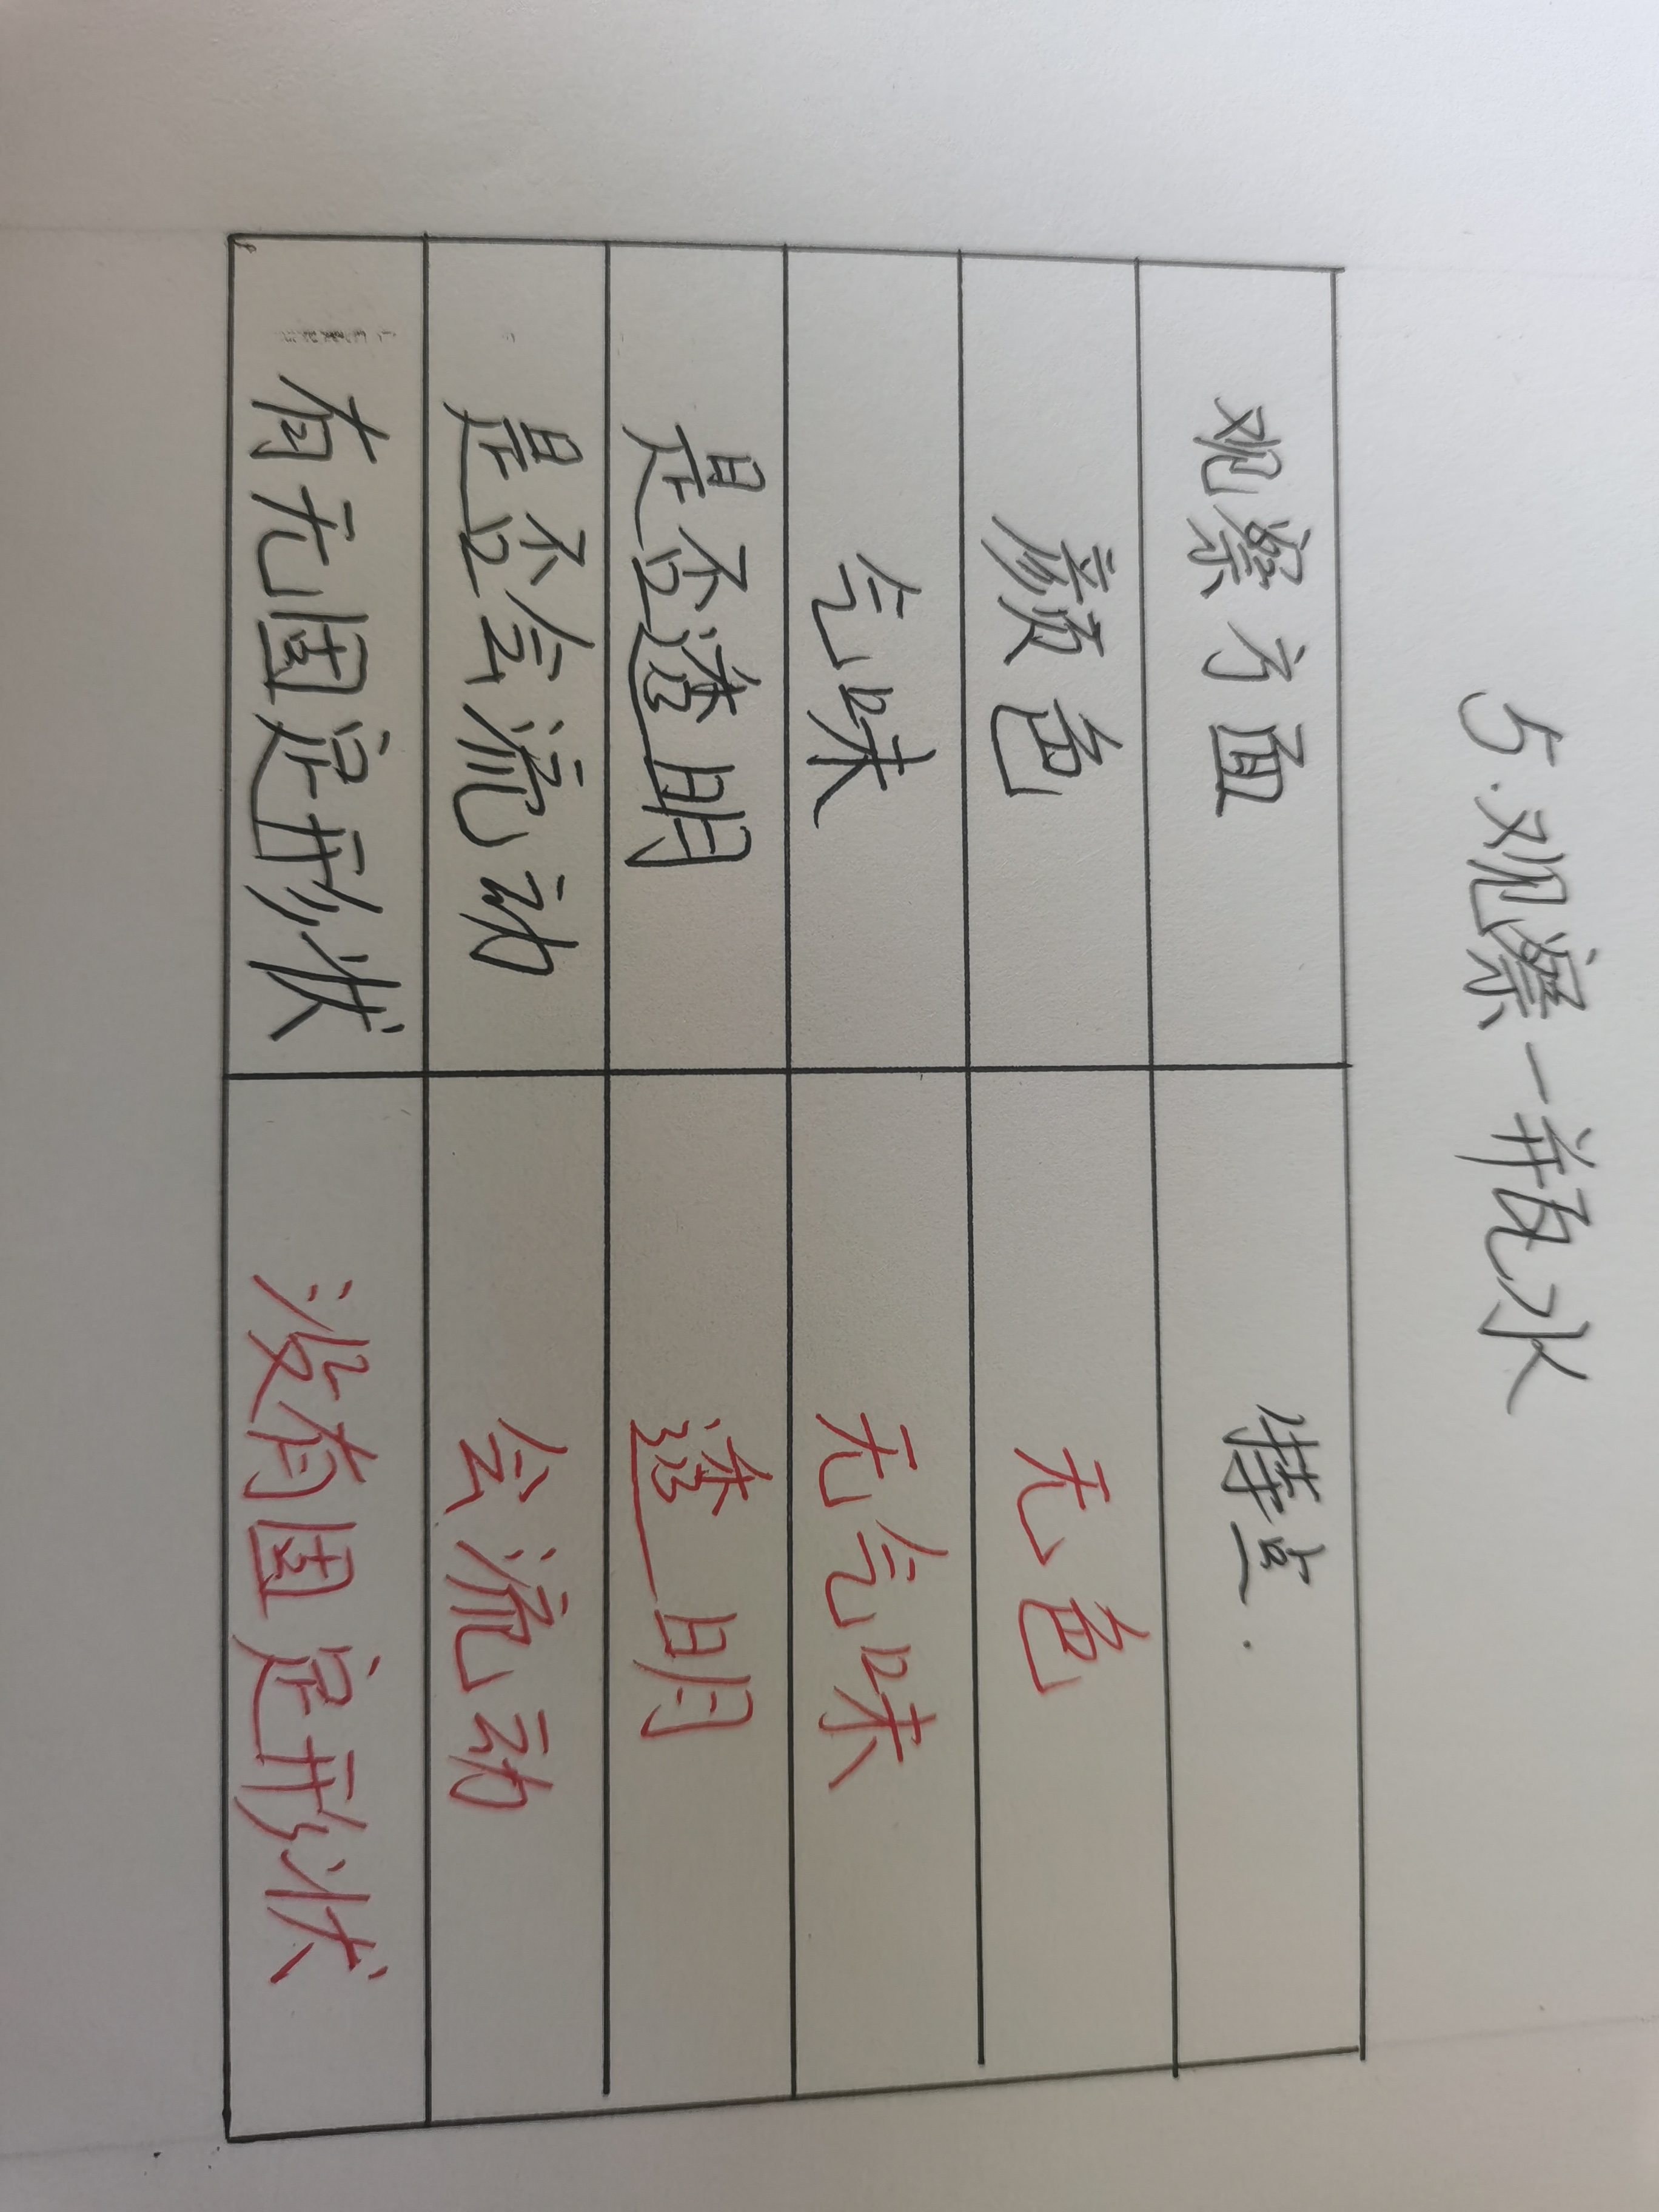 5.观察一瓶水
观察方面 特点.
颜色 无色
气味 无气味
是否透明 透明
是否会流动 会流动
有无固定形状 没有固定形状